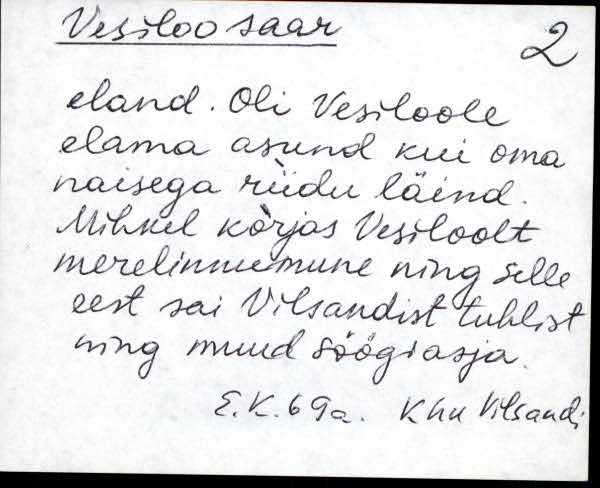 Vesiloo saar
2
eland. Oli Vesiloole
elama asund kui oma
naisega riidu läind.
Mihkel kòrjas Vesiloolt
merelinnumune ning selle
eest sai Vilsandist tuhlist
ning muud söögiasja.
E.K. 69a. Khn Vilsandi